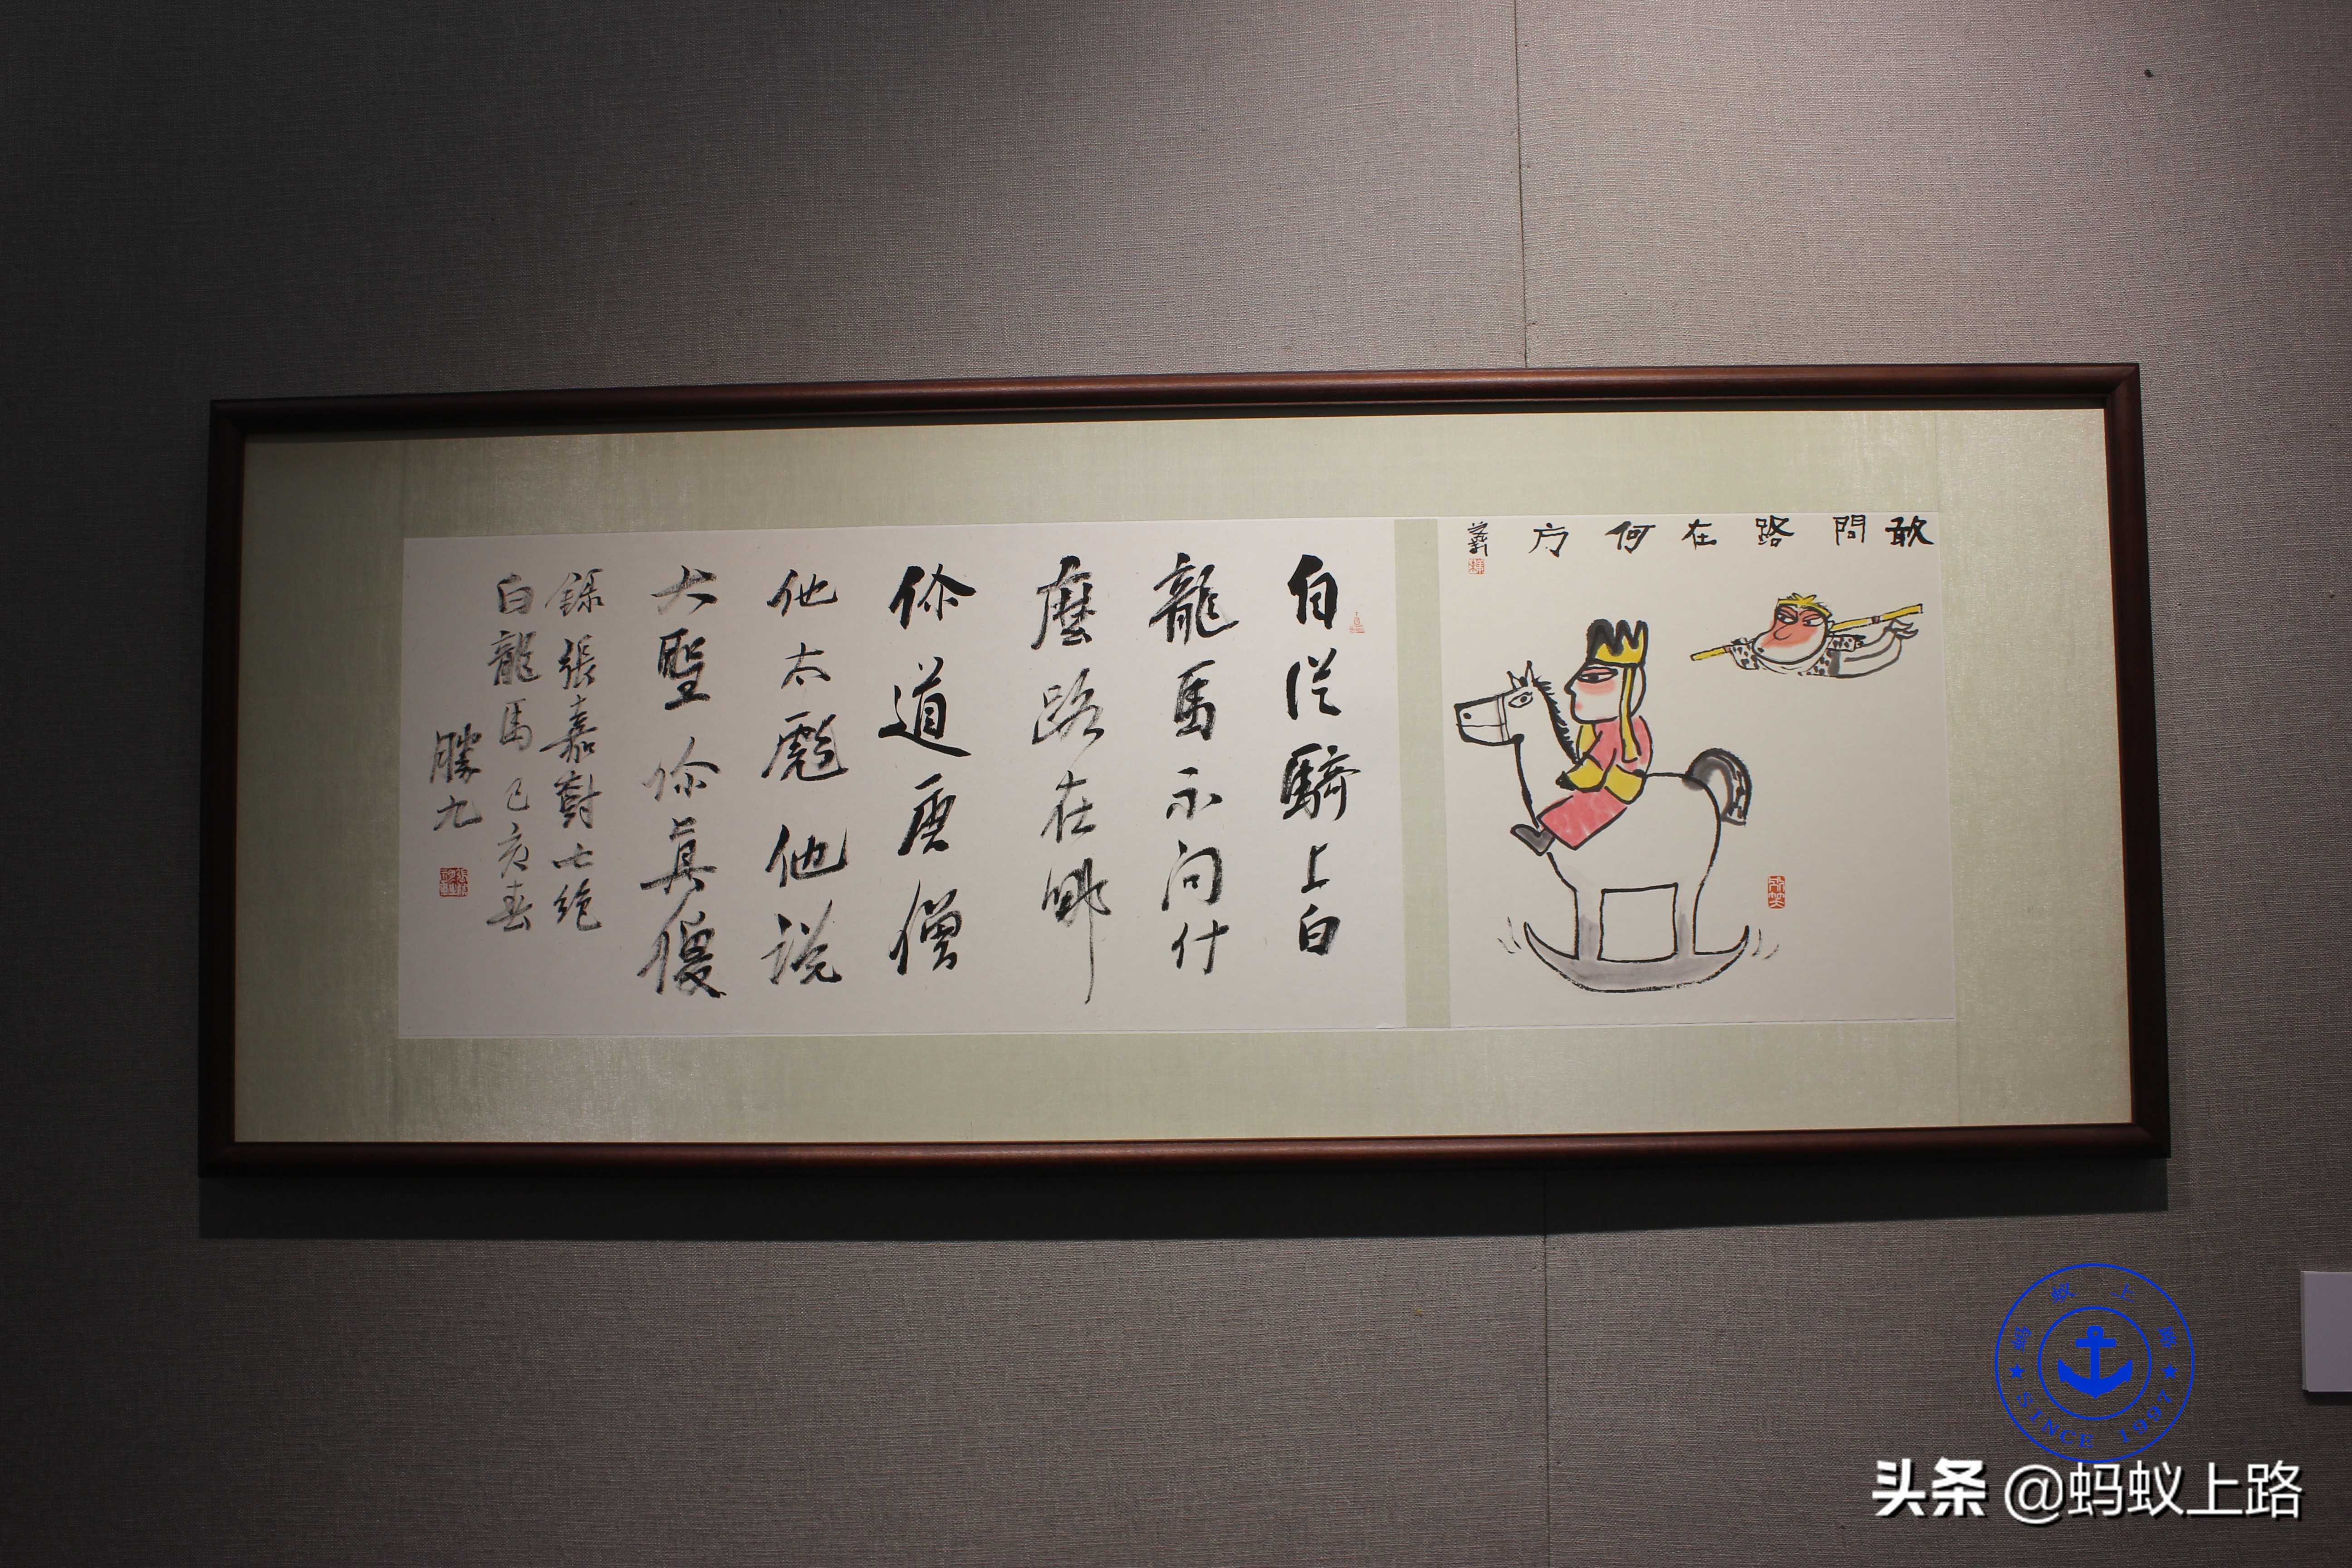 敢問路在何方
自從騎上白
龍馬不问什
麼路在哪
你道唐僧
他太彪他说
大聖你真傻
錄張嘉樹七绝
白龍馬己亥春
勝九
蚂蚁上路
SINCE 1997
头条 @蚂蚁上路